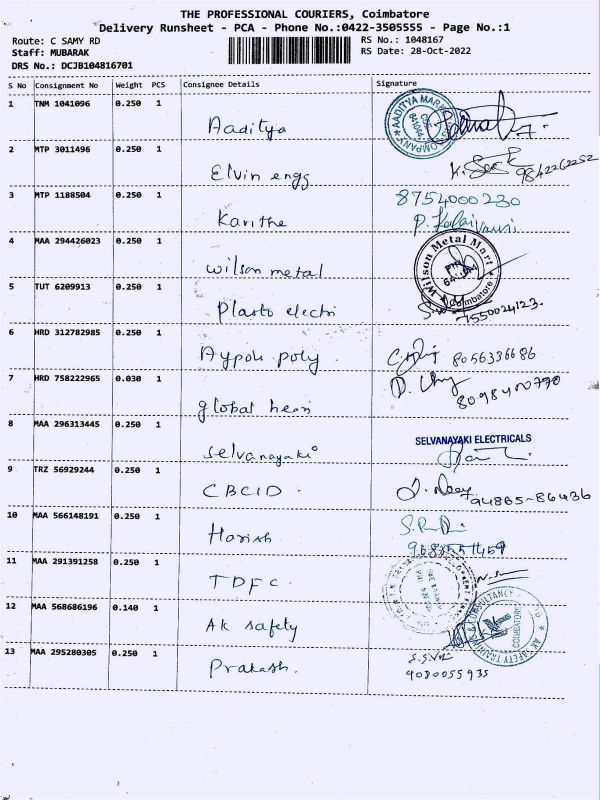 THE PROFESSIONAL COURIERS, Coimbatore
Delivery Runsheet - PCA - Phone No.:0422-3505555 - Page No.:1
Route: C SAMY RD
RS No.: 1048167
Staff: MUBARAK
RS Date: 28-Oct-2022
DRS No.: DCJB104816701
S No Consignment No Weight PCS Consignee Details Signature
1 TNM 1041096 0.250 1
Aaditya
AADITYA MARK COMPANY
2 MTP 3011496 0.250 1
Elvin engg
9842262252
3 MTP 1188504 0.250 1
8754000230
Karithe
P. Kalaivani
4 MAA 294426023 0.250 1
Wilson metal
Wilson Metal Mart
Coimbatore
5 TUT 6209913 0.250 1
Plasto electri
7550024123.
6 HRD 312782985 0.250 1
poly
8056336686
7 HRD 758222965 0.030 1
global
8098400790
8 MAA 296313445 0.250 1
SELVANAYAKI ELECTRICALS
Selvanayaki
9 TRZ 56929244 0.250 1
CBCID
94885-86436
10 MAA 566148191 0.250 1
Harish
11 MAA 291391258 0.250 1
TDFC
12 MAA 568686196 0.140 1
AK safety
AK SAFETY TRAINING & CONSULTANCY
COIMBATORE
13 MAA 295280305 0.250 1
Prakash.
9080055935